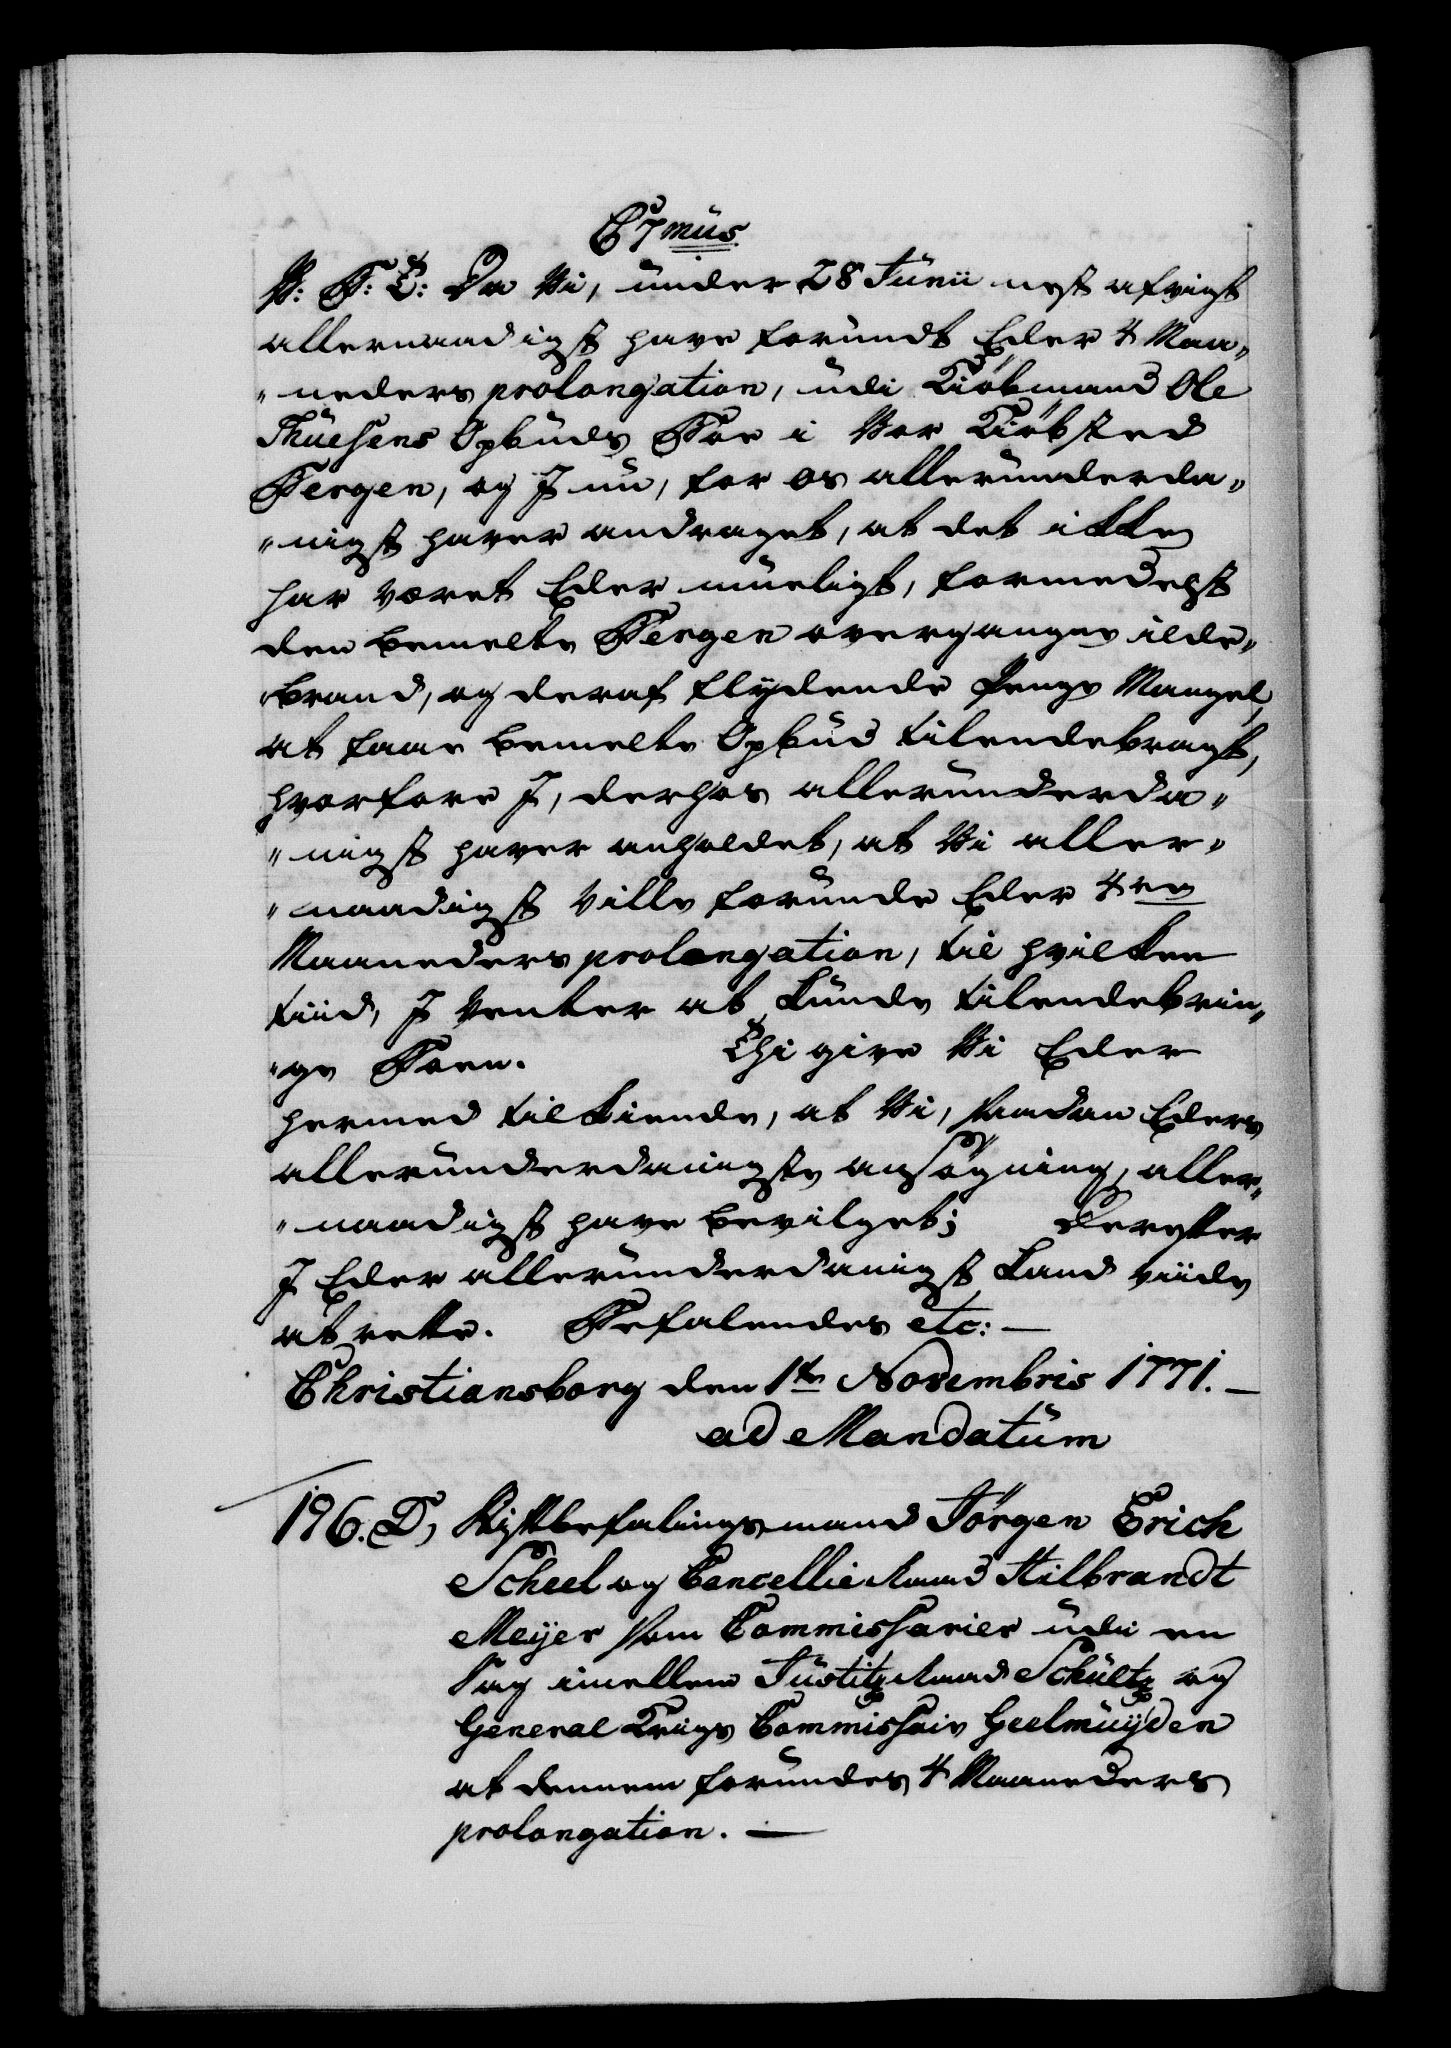 C7mus
V: G: T: Da Vi, under 28 Junii nest afvigt
allernaadigst have forundt Eder 4 Maa„
„neders prolongation, udi Kiöbmand Ole
Thuesens Opbuds Boe i Vor Kiöbsted
Bergen, og I nu, for os allerunderda„
„nigst haver andraget, at det ikke
har været Eder mueligt, formedelst
den bemelte Bergen overgangne ilde„
„brand, og deraf flydende Penge Mangel,
at faae bemelte Opbud tilendebragt,
hvorfore I, derhos allerunderda„
„nigst haver anholdet, at Vi aller„
„naadigst ville forunde Eder 4re
Maaneders prolongation, til hvilken
tiid, I venter at kunde tilendebrin„
„ge Boen. Thi give Vi Eder
hermed tilkiende, at Vi, saadan Eders
allerunderdanigste ansögning, aller„
„naadigst have bevilget; Derefter
I Eder allerunderdanigst kand viide
at rette. Befalendes etc: —
Christiansborg den 1te Novembris 1771. —
ad Mandatum
196. D, Stiftbefalingsmand Jörgen Erich
Scheel og Cancellie Raad Hilbrandt
Meyer som Commissarier udi en
Sag imellem Justitz Raad Schultz og
General Krigs Commissair Geelmuyden
at dennem forundes 4 Maaneders
prolongation. —